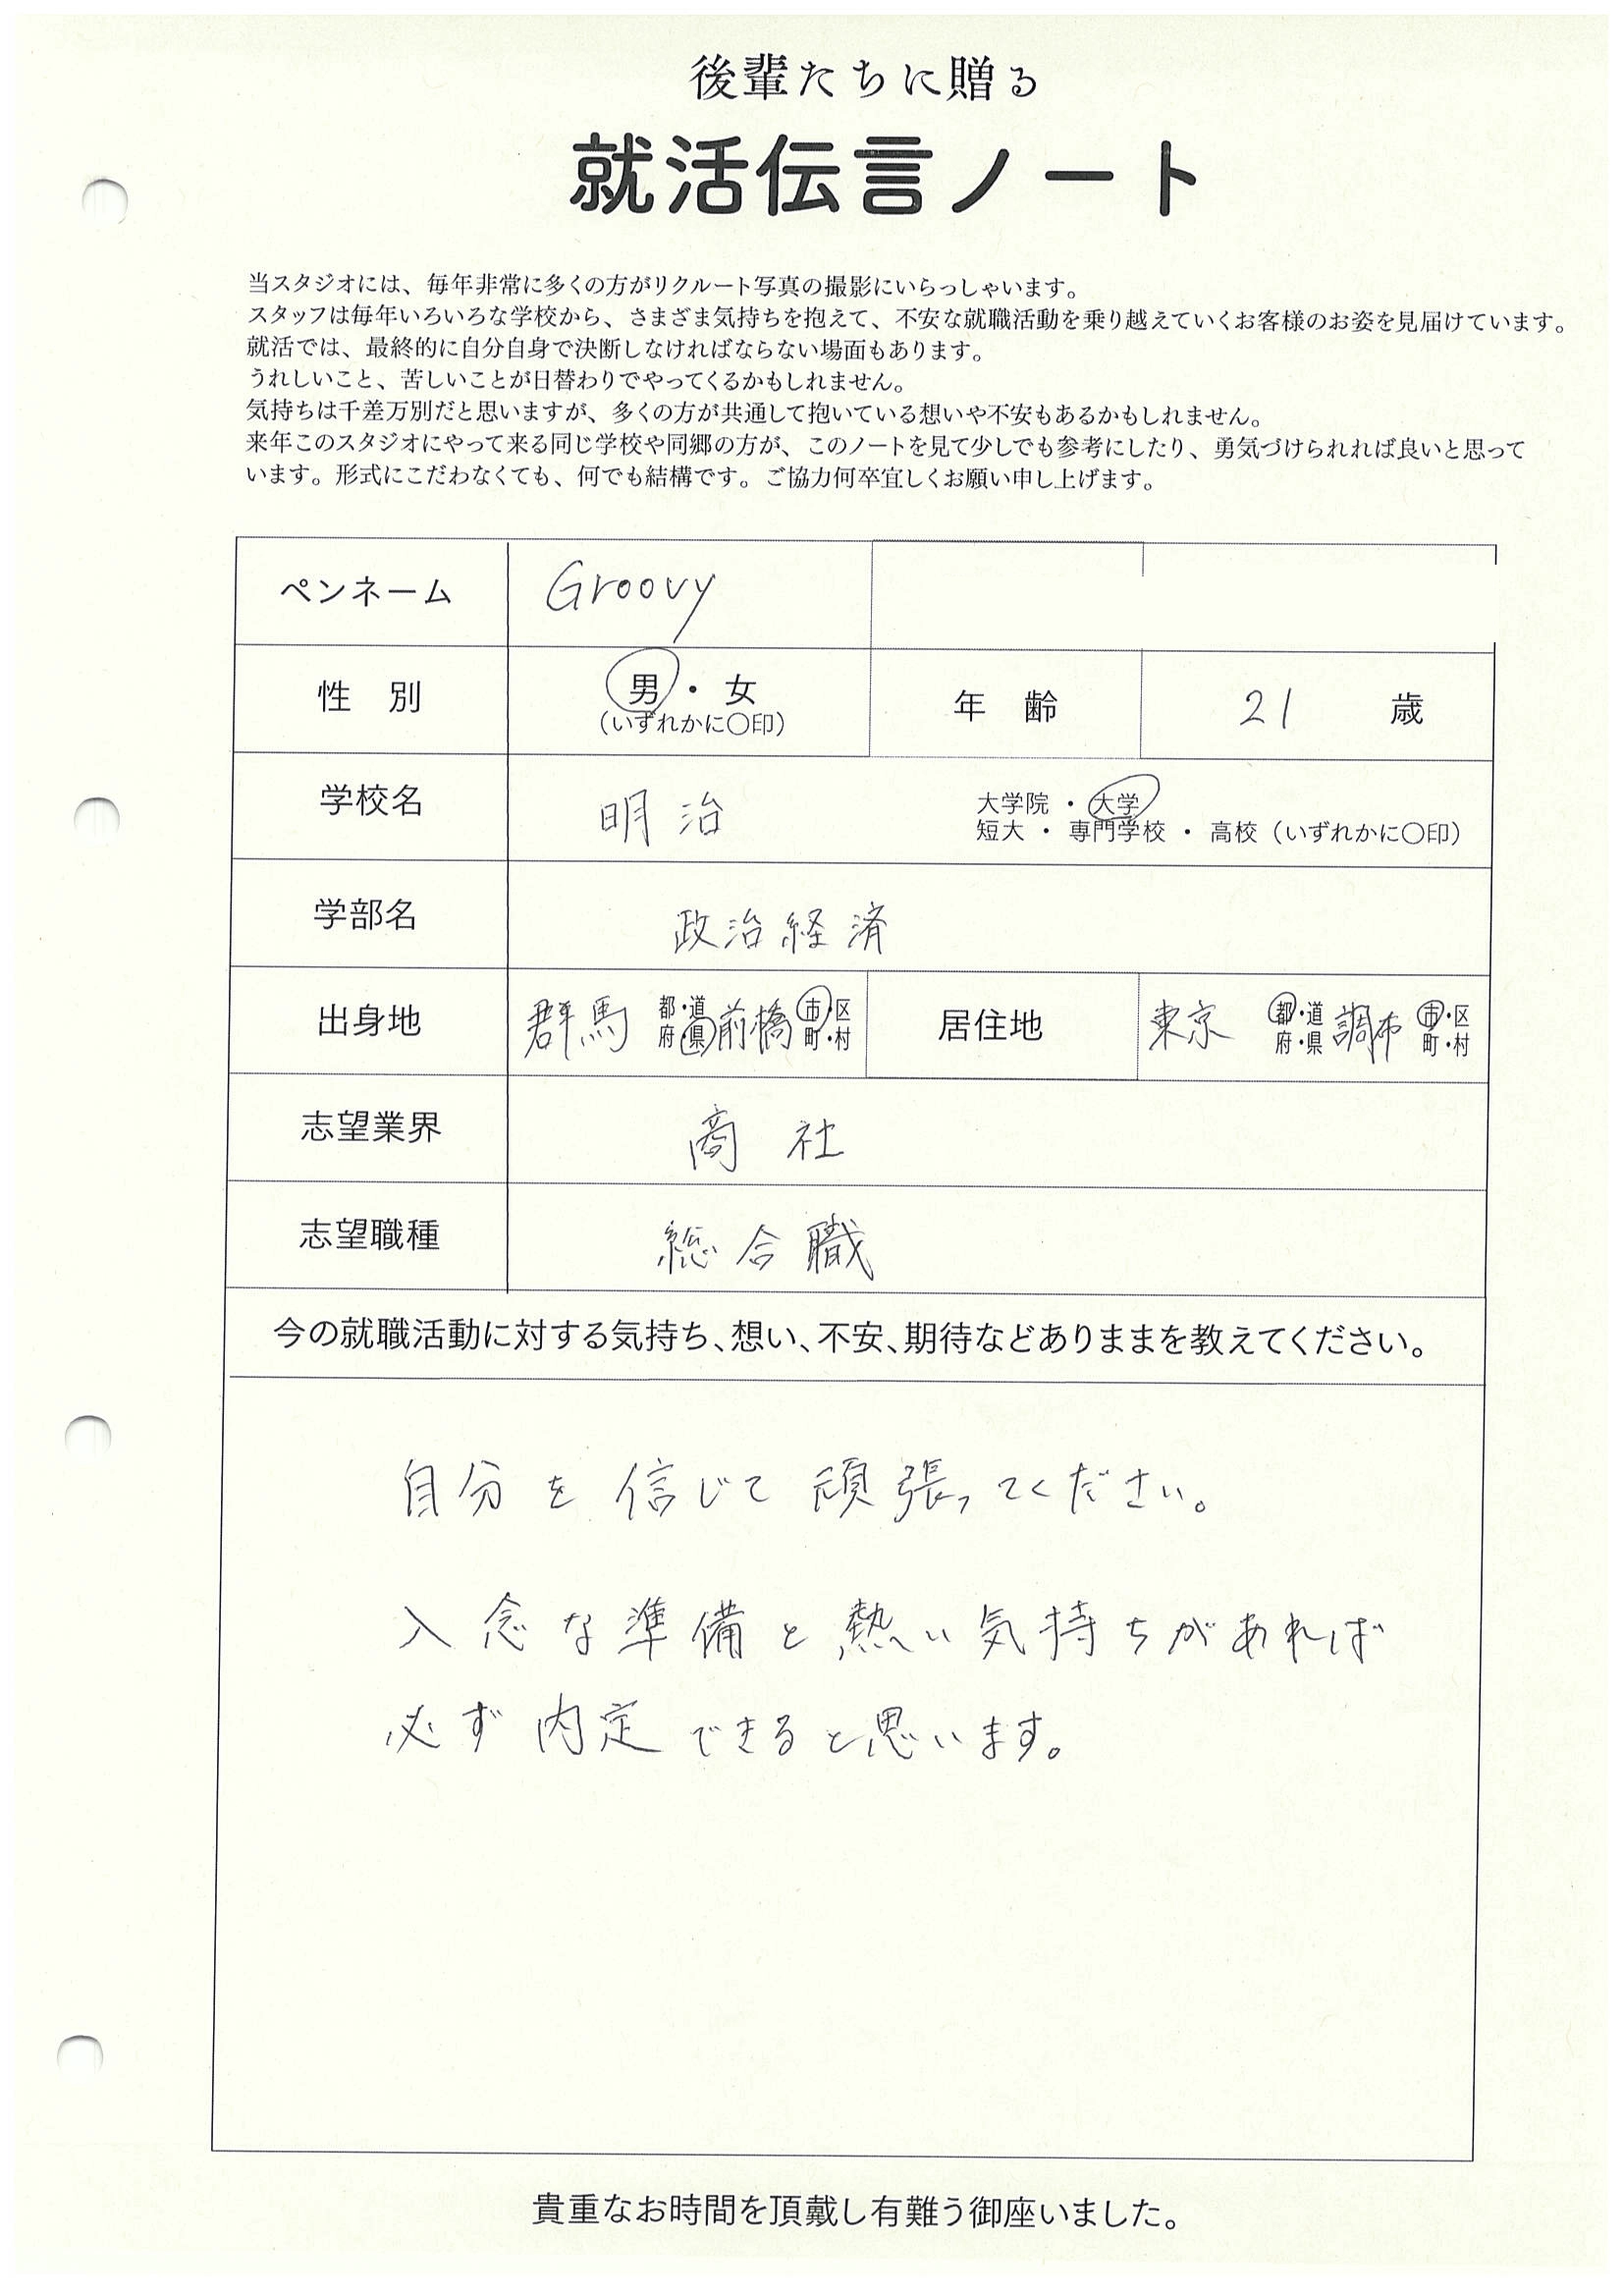 後輩たちに贈る
就活伝言ノート
当スタジオには、毎年非常に多くの方がリクルート写真の撮影にいらっしゃいます。
スタッフは毎年いろいろな学校から、さまざま気持ちを抱えて、不安な就職活動を乗り越えていくお客様のお姿を見届けています。
就活では、最終的に自分自身で決断しなければならない場面もあります。
うれしいこと、苦しいことが日替わりでやってくるかもしれません。
気持ちは千差万別だと思いますが、多くの方が共通して抱いている想いや不安もあるかもしれません。
来年このスタジオにやって来る同じ学校や同郷の方が、このノートを見て少しでも参考にしたり、勇気づけられれば良いと思って
います。形式にこだわなくても、何でも結構です。ご協力何卒宜しくお願い申し上げます。
ペンネーム Groovy
性 別 男・女 年 齢 21 歳
(いずれかに〇印)
学校名 明治 大学院・大学
短大・専門学校・高校(いずれかに〇印)
学部名 政治経済
出身地 群馬 都・道 府・県 前橋 市・区 町・村 居住地 東京 都・道 府・県 調布 市・区 町・村
志望業界 商社
志望職種 総合職
今の就職活動に対する気持ち、想い、不安、期待などありままを教えてください。
自分を信じて頑張ってください。
入念な準備と熱い気持ちがあれば
必ず内定できると思います。
貴重なお時間を頂戴し有難う御座いました。